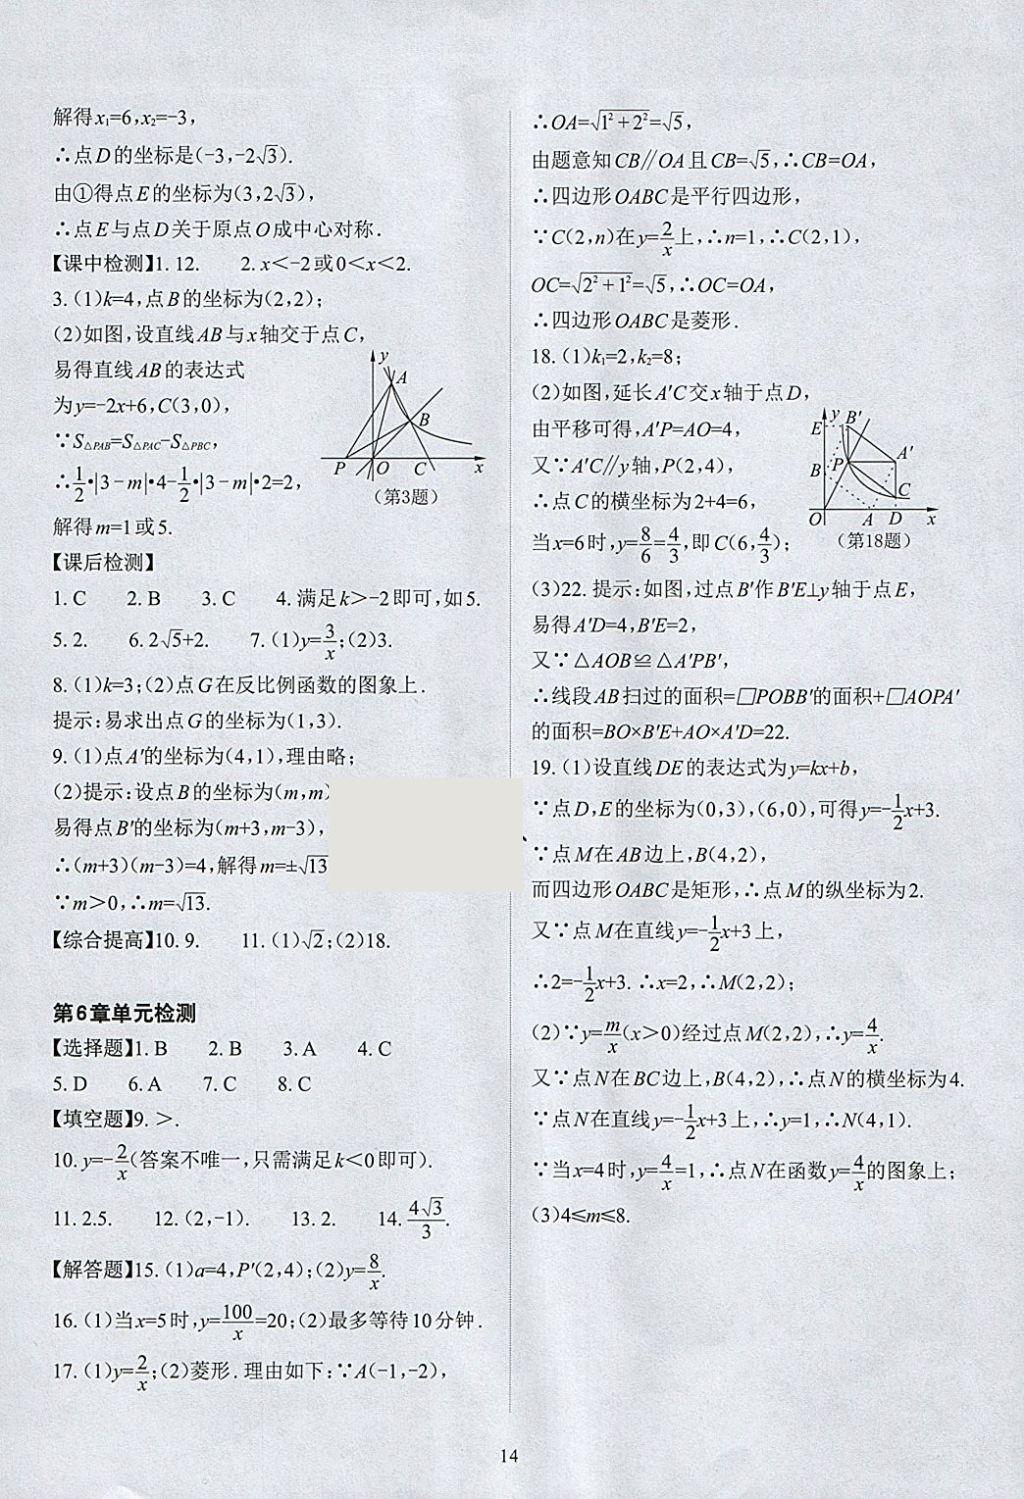 解得x₁=6,x₂=-3,
∴点D的坐标是(-3,-2√3).
由①得点E的坐标为(3,2√3),
∴点E与点D关于原点O成中心对称.
【课中检测】1. 12. 2. x<-2或0<x<2.
3. (1)k=4,点B的坐标为(2,2);
(2)如图,设直线AB与x轴交于点C,
易得直线AB的表达式
为y=-2x+6,C(3,0),
∵S△PAB=S△PAC-S△PBC,
∴1/2•|3-m|•4-1/2•|3-m|•2=2,
解得m=1或5.
y A B P O C x
(第3题)
【课后检测】
1. C 2. B 3. C 4. 满足k>-2即可,如5.
5. 2. 6. 2√5+2. 7. (1)y=3/x;(2)3.
8. (1)k=3;(2)点G在反比例函数的图象上.
提示:易求出点G的坐标为(1,3).
9. (1)点A′的坐标为(4,1),理由略;
(2)提示:设点B的坐标为(m,m)
易得点B′的坐标为(m+3,m-3),
∴(m+3)(m-3)=4,解得m=±√13
∵m>0,∴m=√13.
【综合提高】10. 9. 11. (1)√2;(2)18.
第6章单元检测
【选择题】1. B 2. B 3. A 4. C
5. D 6. A 7. C 8. C
【填空题】9. >.
10. y=-2/x(答案不唯一,只需满足k<0即可).
11. 2.5. 12. (2,-1). 13. 2. 14. 4√3/3.
【解答题】15. (1)a=4,P′(2,4);(2)y=8/x.
16. (1)当x=5时,y=100/x=20;(2)最多等待10分钟.
17. (1)y=2/x;(2)菱形. 理由如下:∵A(-1,-2),
∴OA=√(1²+2²)=√5,
由题意知CB∥OA且CB=√5,∴CB=OA,
∴四边形OABC是平行四边形,
∵C(2,n)在y=2/x上,∴n=1,∴C(2,1),
OC=√(2²+1²)=√5,∴OC=OA,
∴四边形OABC是菱形.
18. (1)k₁=2,k₂=8;
(2)如图,延长A′C交x轴于点D,
由平移可得,A′P=AO=4,
又∵A′C∥y轴,P(2,4),
∴点C的横坐标为2+4=6,
当x=6时,y=8/6=4/3,即C(6,4/3);
y E B′ A′ P B C O A D x
(第18题)
(3)22. 提示:如图,过点B′作B′E⊥y轴于点E,
易得A′D=4,B′E=2,
又∵△AOB≌△A′PB′,
∴线段AB扫过的面积=□POBB′的面积+□AOPA′
的面积=BO×B′E+AO×A′D=22.
19. (1)设直线DE的表达式为y=kx+b,
∵点D,E的坐标为(0,3),(6,0),可得y=-1/2x+3.
∵点M在AB边上,B(4,2),
而四边形OABC是矩形,∴点M的纵坐标为2.
又∵点M在直线y=-1/2x+3上,
∴2=-1/2x+3. ∴x=2,∴M(2,2);
(2)∵y=m/x(x>0)经过点M(2,2),∴y=4/x.
又∵点N在BC边上,B(4,2),∴点N的横坐标为4.
∵点N在直线y=-1/2x+3上,∴y=1,∴N(4,1).
∵当x=4时,y=4/x=1,∴点N在函数y=4/x的图象上;
(3)4≤m≤8.
14